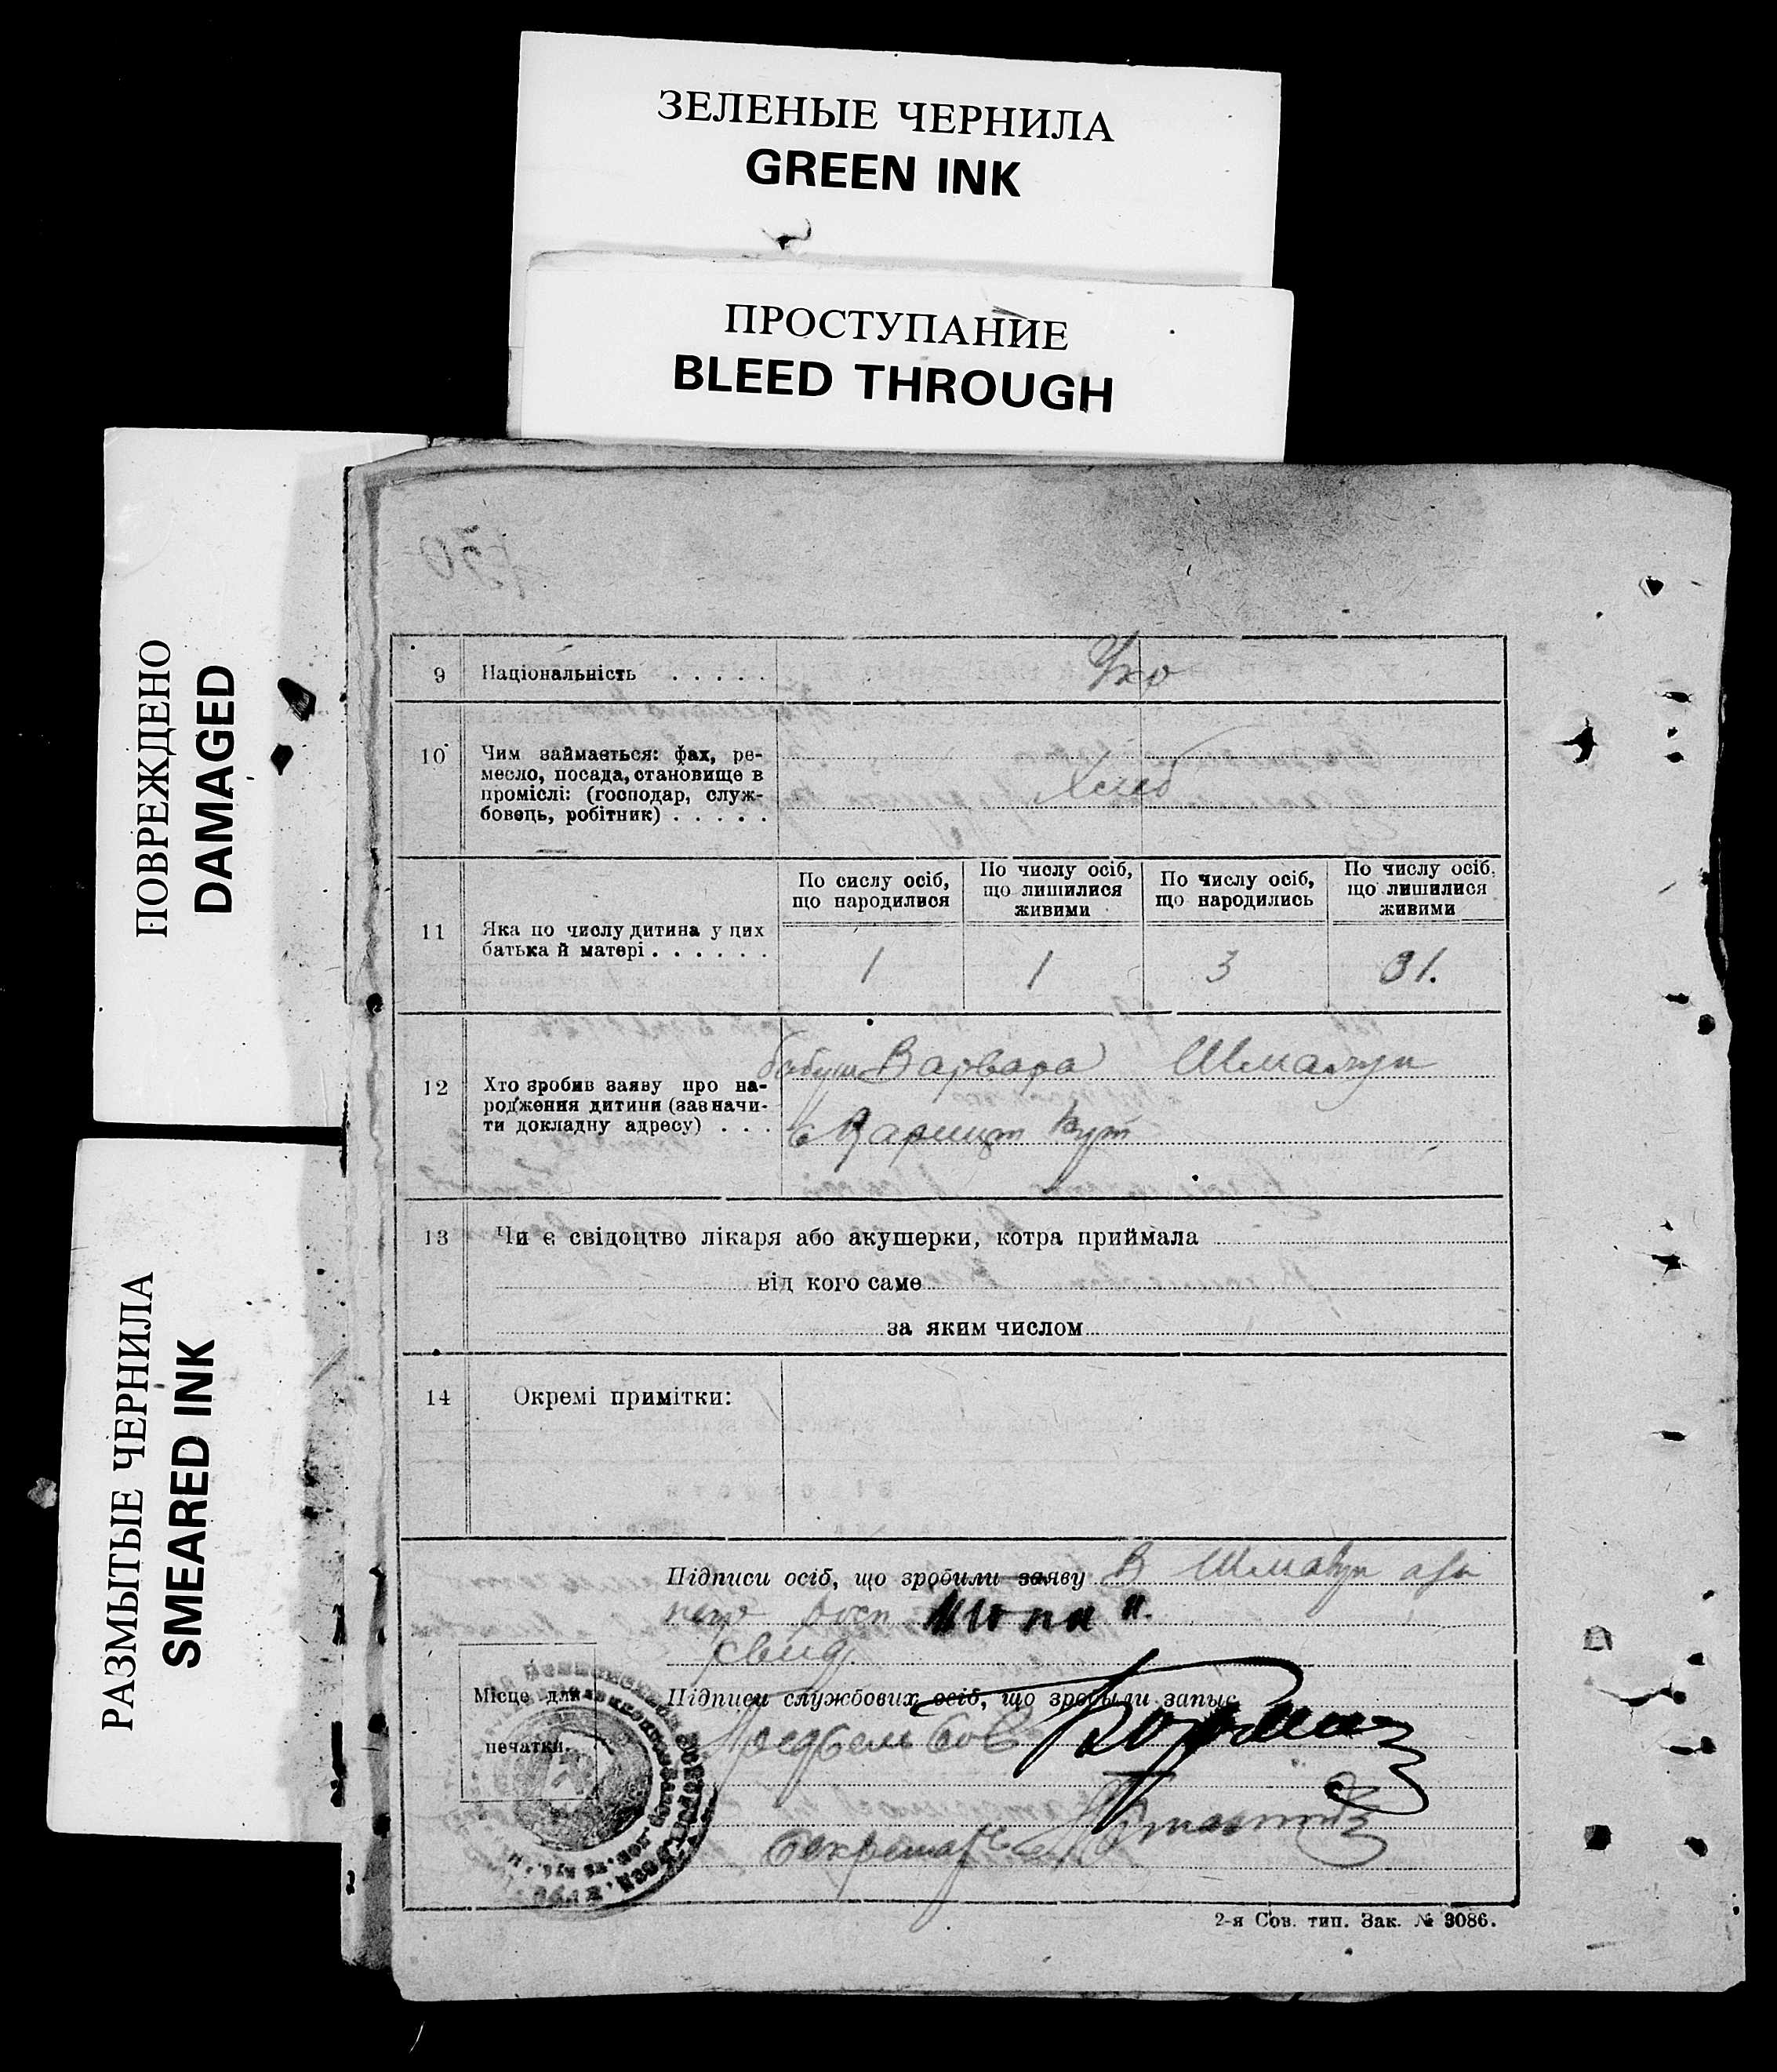 ЗЕЛЕНЫЕ ЧЕРНИЛА
GREEN INK
ПРОСТУПАНИЕ
BLEED THROUGH
ПОВРЕЖДЕНО
DAMAGED
РАЗМЫТЫЕ ЧЕРНИЛА
SMEARED INK
9 Національність . . . . . Укр
10 Чим займається: фах, ре-
месло, посада, становище в
проміслі: (господар, служ-
бовець, робітник) . . . . . Хлеб
По сислу осіб, що народилися
По числу осіб, що лишилися живими
По числу осіб, що народились
По числу осіб, що лишилися живими
11 Яка по числу дитина у цих
батька й матері . . . . . .
1 1 3 31.
12 Хто зробив заяву про на-
родження дитини (зазначи-
ти докладну адресу) . . .
бабуш Варвара
Кут
13 Чи є свідоцтво лікаря або акушерки, котра приймала
від кого саме
за яким числом
14 Окремі примітки:
Підписи осіб, що зробили заяву В
Місце для
печатки.
Підписи службових осіб, що зробыли запыс
Секретарь
2-я Сов. тип. Зак. № 3086.